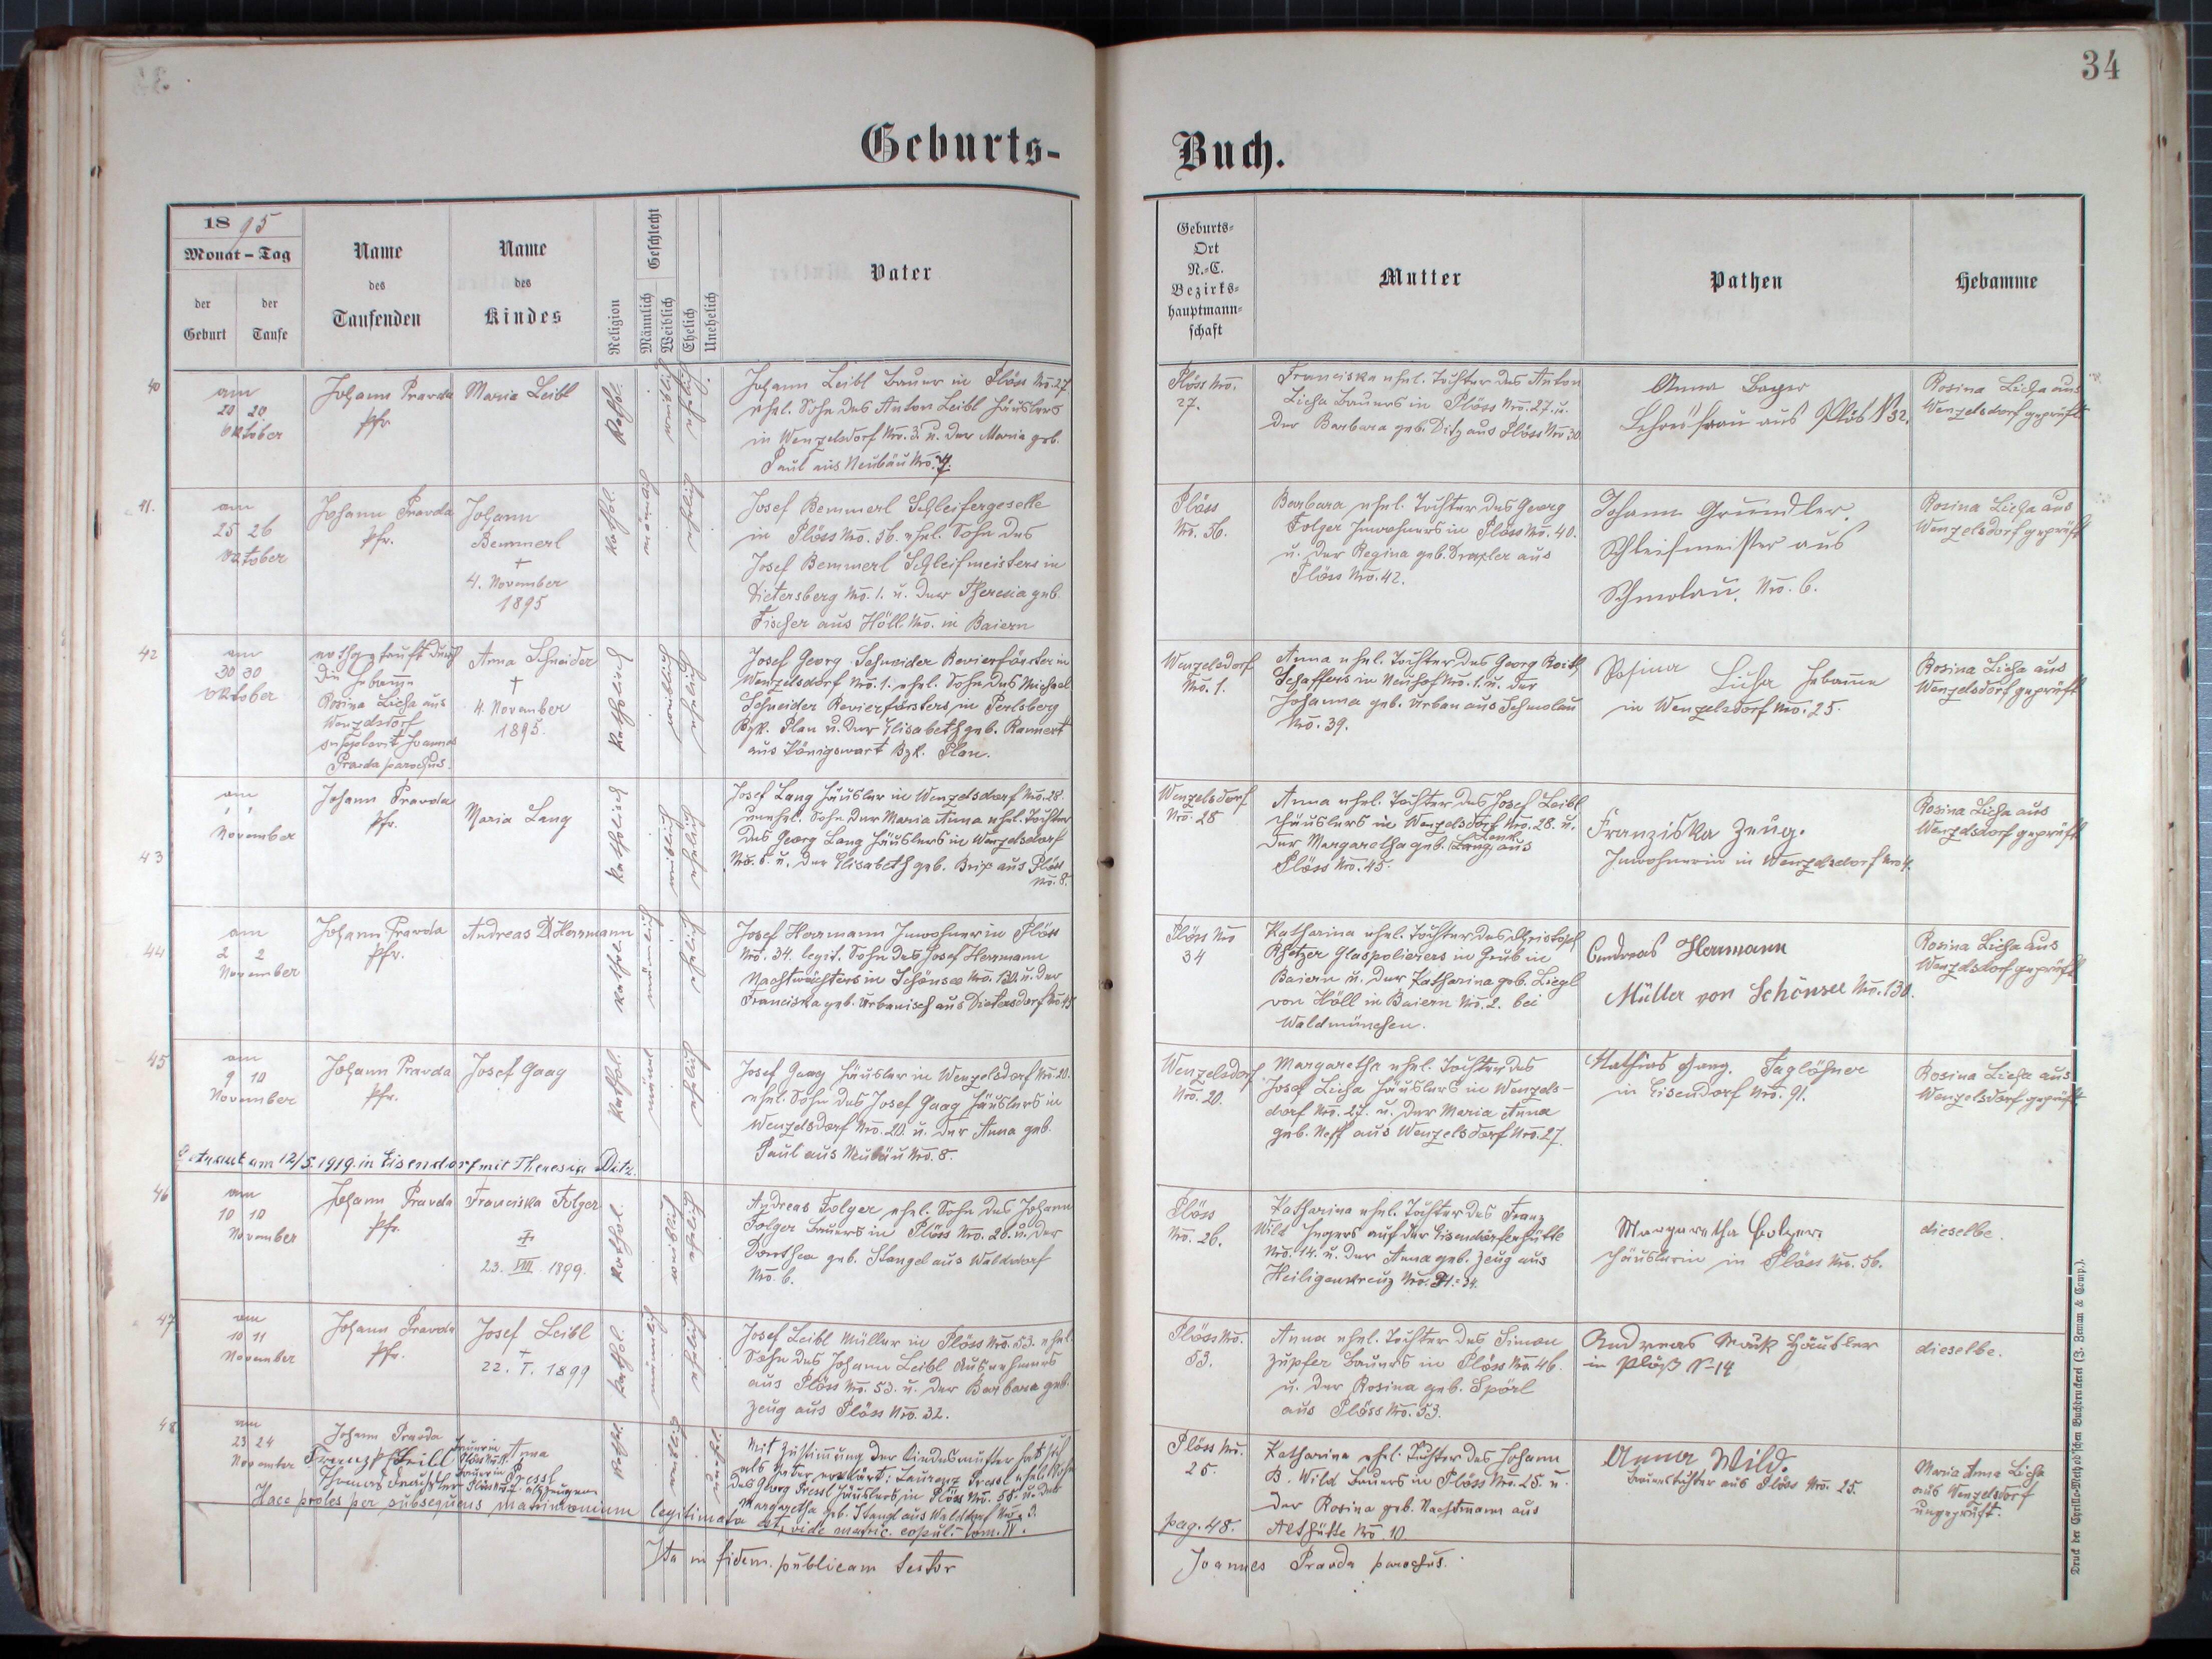 34
Geburts-
Buch.
1895
Monat - Tag
der Geburt
der Taufe
Name des Taufenden
Name des Kindes
Religion
Geschlecht
Männlich
Weiblich
Ehelich
Unehelich
Vater
Geburts-Ort N.-C. Bezirks-hauptmann-schaft
Mutter
Pathen
Hebamme
40
am
20 20
Oktober
Johann Pravda
Pfr.
Maria Leibl
Kathol.
weiblich
ehelich
Johann Leibl Bauer in Plöss Nro. 27.
ehel. Sohn des Anton Leibl Häuslers
in Wenzelsdorf Nro. 3. u. der Maria geb.
Paul aus Neubäu Nro.
Plöss Nro.
27.
Franciska ehel. Tochter des Anton
Licha Bauers in Plöss Nro. 27. u.
der Barbara geb. Ditz aus Plöss Nro 30
Anna
aus Plös N 32.
Rosina Licha aus
Wenzelsdorf geprüft
41.
am
25 26
Oktober
Johann Pravda
Pfr.
Johann
Bemmerl
†
4. November
1895
Kathol.
männlich
ehelich
Josef Bemmerl Schleifergeselle
in Plöss Nro. 56. ehel. Sohn des
Josef Bemmerl Schleifmeisters in
Dietersberg Nro. 1. u. der Theresia geb.
Fischer aus Höll Nro. in Baiern
Plöss
Nro. 56.
Barbara ehel. Tochter des Georg
Folger Inwohners in Plöss Nro. 40.
u. der Regina geb. Drexler aus
Plöss Nro. 42.
Johann Gründler
Schleifmeister aus
Schmolau. Nro. 6.
Rosina Licha aus
Wenzelsdorf geprüft
42
am
30 30
Oktober
nothgetauft durch
die Hebamme
Rosina Licha aus
Wenzelsdorf
Joannes
Pravda parochus.
Anna Schneider
†
4. November
1895.
Katholisch
weiblich
ehelich
Josef Georg Schneider Revierförster in
Wenzelsdorf Nro. 1. ehel. Sohn des Michael
Schneider Revierförsters in Perlsberg
Bzk. Plan u. der Elisabeth geb. Rannert
aus Königswart Bzk. Plan.
Wenzelsdorf
Nro. 1.
Anna ehel. Tochter des Georg Roith
Schaffers in Neuhof Nro. 1. u. der
Johanna geb. Urban aus Schmolau
Nro. 39.
Rosina Licha Hebamme
in Wenzelsdorf Nro. 25.
Rosina Licha aus
Wenzelsdorf geprüft
43
am
1 1
November
Johann Pravda
Pfr.
Maria Lang
Katholisch
weiblich
ehelich
Josef Lang Häusler in Wenzelsdorf Nro. 28.
unehel. Sohn der Maria Anna ehel. Tochter
des Georg Lang Häuslers in Wenzelsdorf
Nro. 5. u. der Elisabeth geb. Brix aus Plöss
Nro. 8.
Wenzelsdorf
Nro. 28
Anna ehel. Tochter des Josef Leibl
Häuslers in Wenzelsdorf Nro. 28. u.
der Margaretha geb. (Lang) aus
Plöss Nro. 45.
Franziska Zeug.
Inwohnerin in Wenzelsdorf Nro 4.
Rosina Licha aus
Wenzelsdorf geprüft
44
am
2 2
November
Johann Pravda
Pfr.
Andreas Herrmann
Kathol.
männlich
ehelich
Josef Herrmann Inwohner in Plöss
Nro. 34. legit. Sohn des Josef Herrmann
Nachtwächters in Schönsee Nro. 130. u. der
Franciska geb. Urbanisch aus Dietersdorf Nro 45
Plöss Nro
34
Katharina ehel. Tochter des Christoph
Glaspolierers in Grub in
Baiern u. der Katharina geb. Liegl
von Höll in Baiern Nro. 2. bei
Waldmünchen.
Andreas Hermann
Müller von Schönsee Nro. 130.
Rosina Licha aus
Wenzelsdorf geprüft
45
am
9 10
November
Johann Pravda
Pfr.
Josef Gaag
Kathol.
männl
ehelich
Josef Gaag Häusler in Wenzelsdorf Nro. 20.
ehel. Sohn des Josef Gaag Häuslers in
Wenzelsdorf Nro. 20. u. der Anna geb.
Paul aus Neubäu Nro. 8.
Getraut am 12/5. 1919. in Eisendorf mit Theresia Ditz.
Wenzelsdorf
Nro. 20.
Margaretha ehel. Tochter des
Josef Licha Häuslers in Wenzels-
dorf Nro. 27. u. der Maria Anna
geb. Neff aus Wenzelsdorf Nro. 27.
Mathias Gaag. Taglöhner
in Eisendorf Nro. 91.
Rosina Licha aus
Wenzelsdorf geprüft.
46
am
10 10
November
Johann Pravda
Pfr.
Franciska Folger
†
23. VIII. 1899.
Kathol.
weiblich
ehelich
Andreas Folger ehel. Sohn des Johann
Folger Bauers in Plöss Nro. 26. u. der
Dorothea geb. Stangel aus Walddorf
Nro. 6.
Plöss
Nro. 26.
Katharina ehel. Tochter des Franz
Wild Hegers auf der Eisendorferhütte
Nro. 14. u. der Anna geb. Zeug aus
Heiligenkreuz Nro. 34.
Margaretha Folger.
Häuslerin in Plöss Nro. 56.
dieselbe.
47
am
10 11
November
Johann Pravda
Pfr.
Josef Leibl
†
22. I. 1899
Kathol.
männlich
ehelich
Josef Leibl Müller in Plöss Nro. 53. ehel.
Sohn des Johann Leibl Ausnehmers
aus Plöss Nro. 53. u. der Barbara geb.
Zeug aus Plöss Nro. 32.
Plöss Nro.
53.
Anna ehel. Tochter des Simon
Zupfer Bauers in Plöss Nro. 46.
u. der Rosina geb. Spörl
aus Plöss Nro. 53.
Andreas Häusler
in Plöß N 14
dieselbe.
48
am
23 24
November
Johann Pravda
Anna
Pressl
Kathol.
weiblich
unehel.
Mit Zustimmung der Kindesmutter hat sich
als Vater erklärt: Laurenz Pressl ehel. Sohn
des Georg Pressl Häuslers in Plöss Nro. 55. u. der
Margaretha geb. Stangl aus Walddorf Nro. 3.
Haec proles per subsequens matrimonium legitimata est, vide matric. copul. tom. IV.
pag. 48.
Ita in fidem publicam testor
Joannes Pravda parochus.
Plöss Nro.
25.
Katharina ehel. Tochter des Johann
B. Wild Bauers in Plöss Nro. 25. u.
der Rosina geb. Nachtmann aus
Althütte Nro 10
Anna Wild.
Bauerstochter aus Plöss Nro. 25.
Maria Anna Licha
aus Wenzelsdorf
ungeprüft.
Druck der Cyrillo-Method'schen Buchdruckerei (J. Zeman & Comp.).